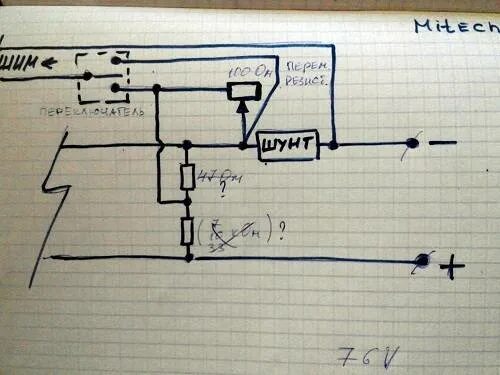 Mitech
ШИМ
100 Ом
ПЕРЕМ.
РЕЗИСТ.
ПЕРЕКЛЮЧАТЕЛЬ
ШУНТ
−
47 Ом
?
?
33
+
76V